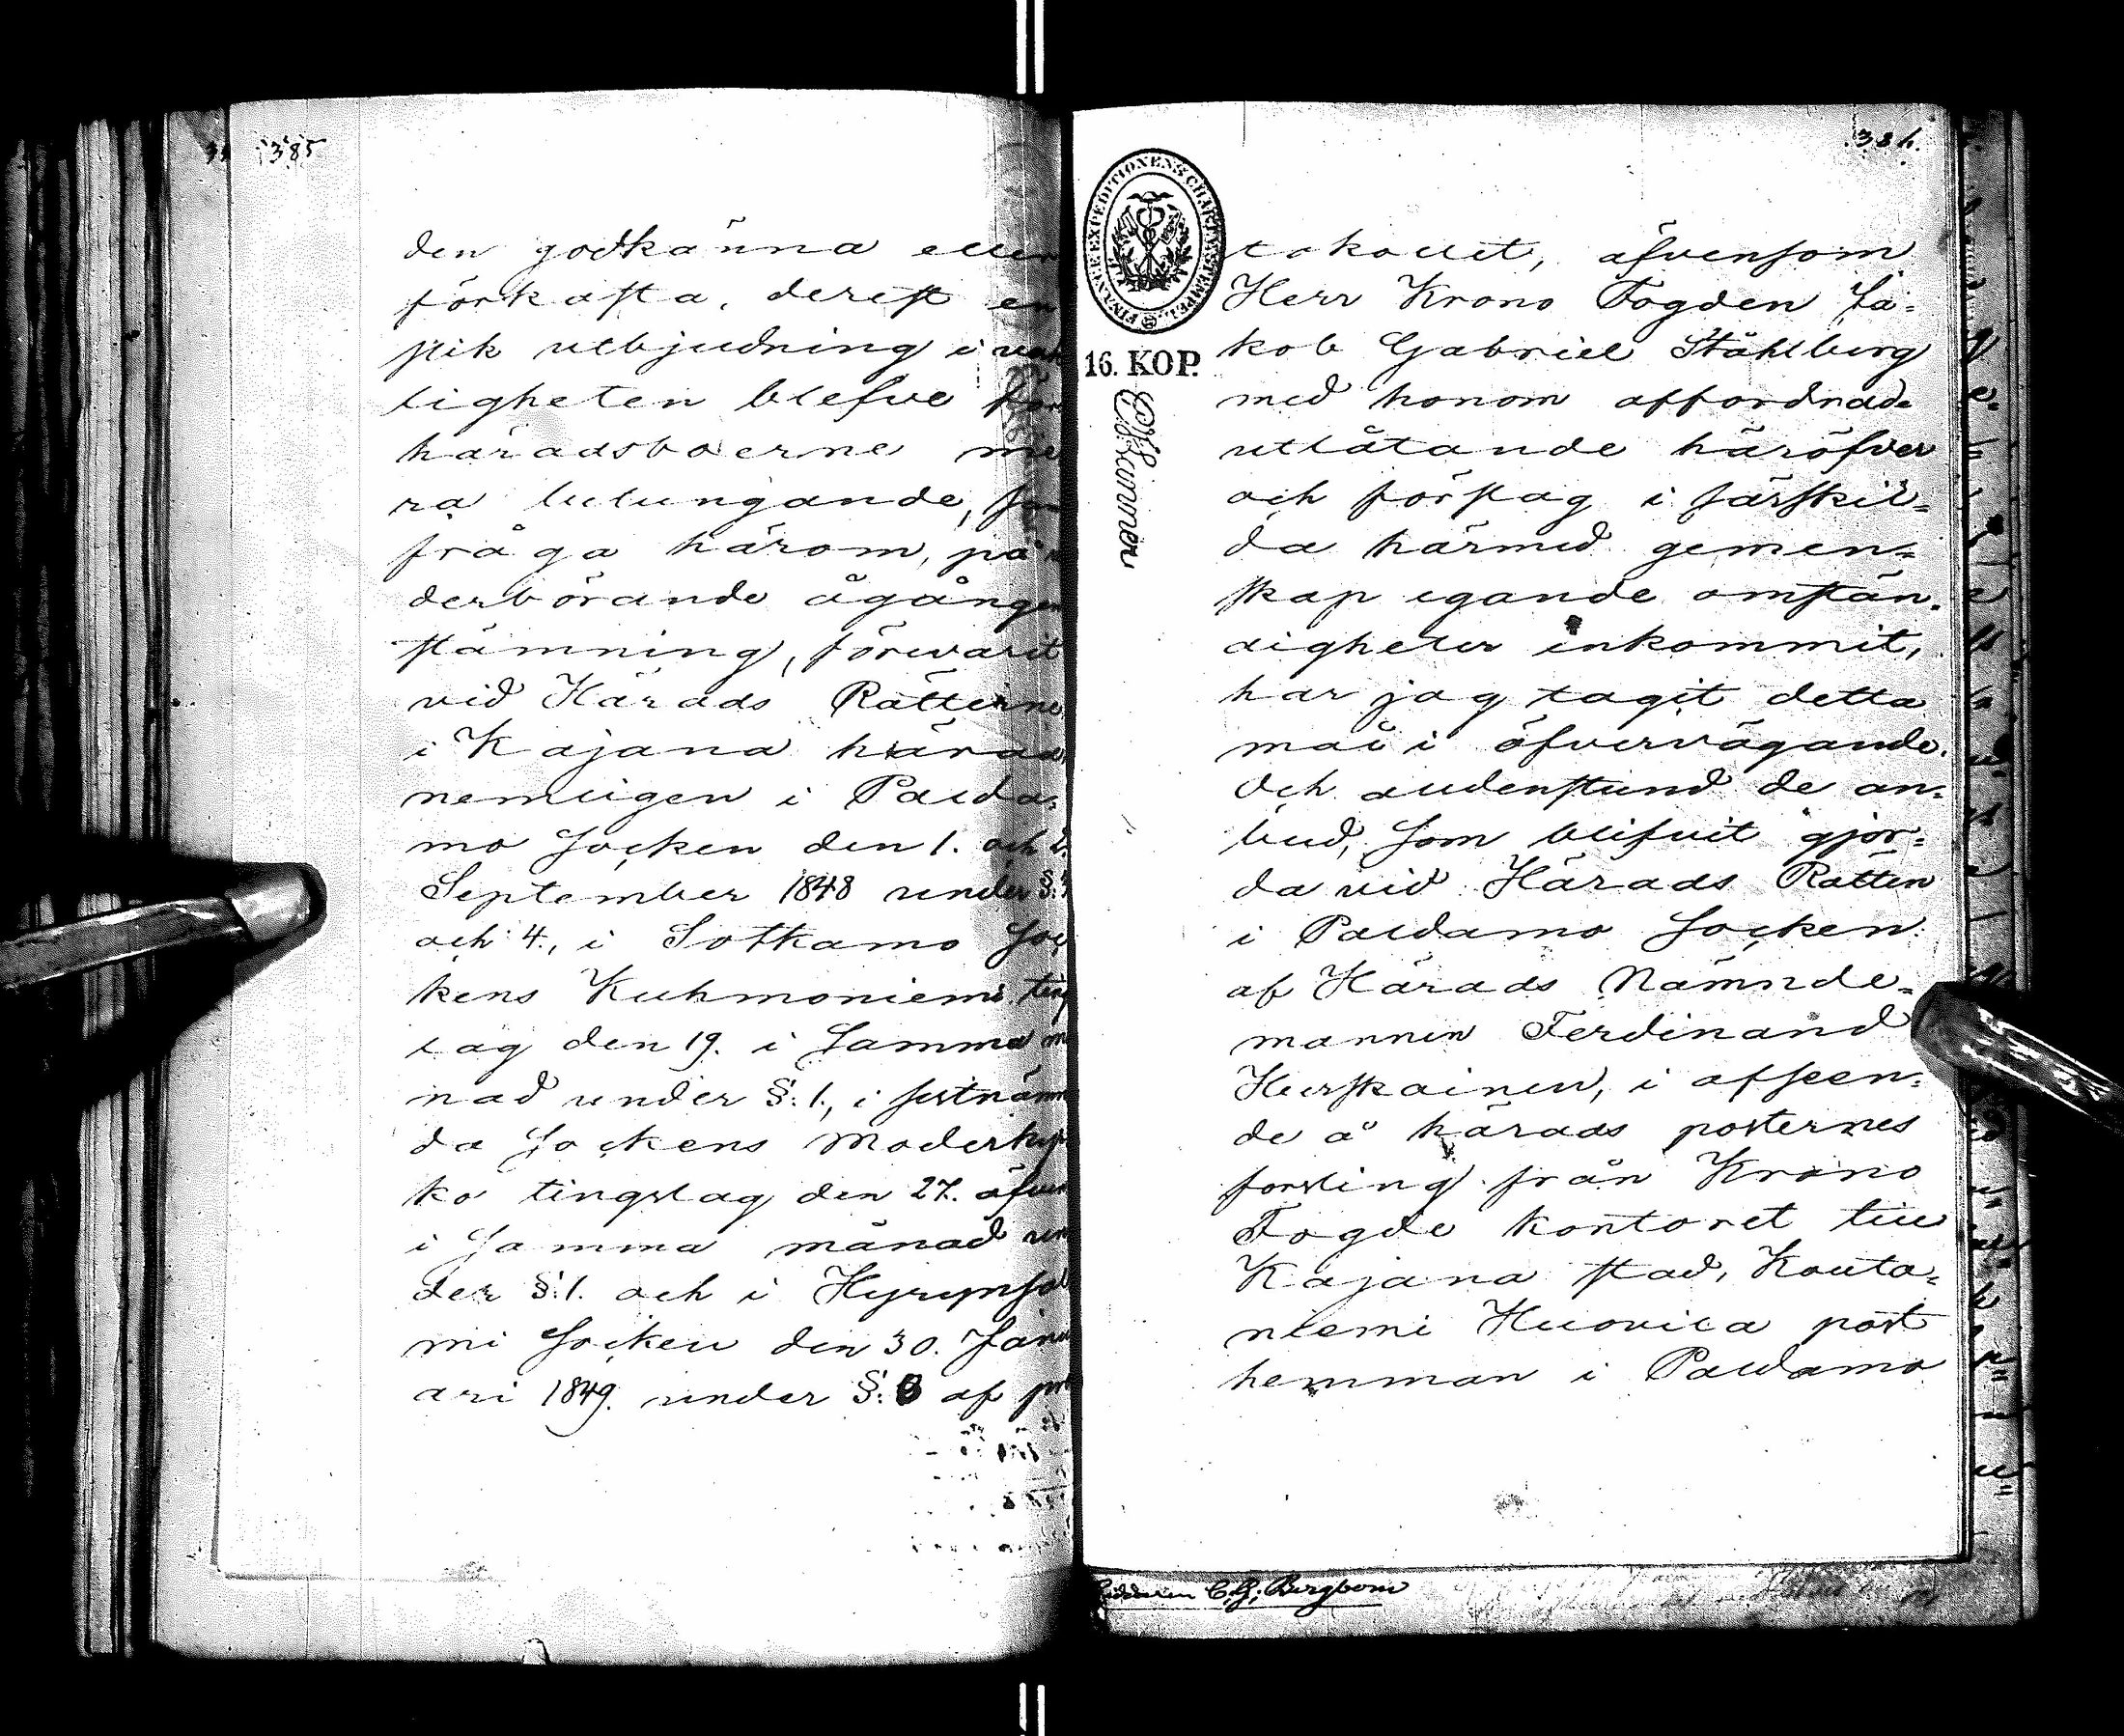 385
den godkänna eller
förkasta, derest en
slik utbjudning i
ligheten blefve för
häradsboerne me
ra betungande,
fråga härom, på
derbörande ågången
stämning, förevarit
vid Härads Rätterne
i Kajana härad
nemligen i Palda=
mo Socken den 1. och 2.
September 1848 under §:
och 4., i Sotkamo Soc
kens Kuhmoniemi ting
lag den 19. i samma m
nad under §:1., i sistnämn
da Sockens Moderkyr
ko tingslag den 27. äfven
i samma månad un
der §:1. och i Hyrynsal
mi Socken den 30. Janu
ari 1849. under §: 8 af pro
386.
FINANCE EXPEDITIONENS CHARTÆ STEMPEL
16. KOP.
tokollet, äfvensom
Herr Krono Fogden Ja=
kob Gabriel Ståhlberg
med honom affordrade
utlåtande häröfver
och förslag i särskil=
da härmed gemen=
skap egande omstän=
digheter inkommit,
har jag tagit detta
mål i öfvervägande.
Och alldenstund de an=
bud, som blifvit gjor=
da vid Härads Rätten
i Paldamo Socken
af Härads Nämnde=
mannen Ferdinand
Hurskainen, i afseen=
de å härads posternes
forsling från Krono
Fogde kontoret till
Kajana stad, Kouta=
niemi Huovila post
hemman i Paldamo
C. G. Bergbom